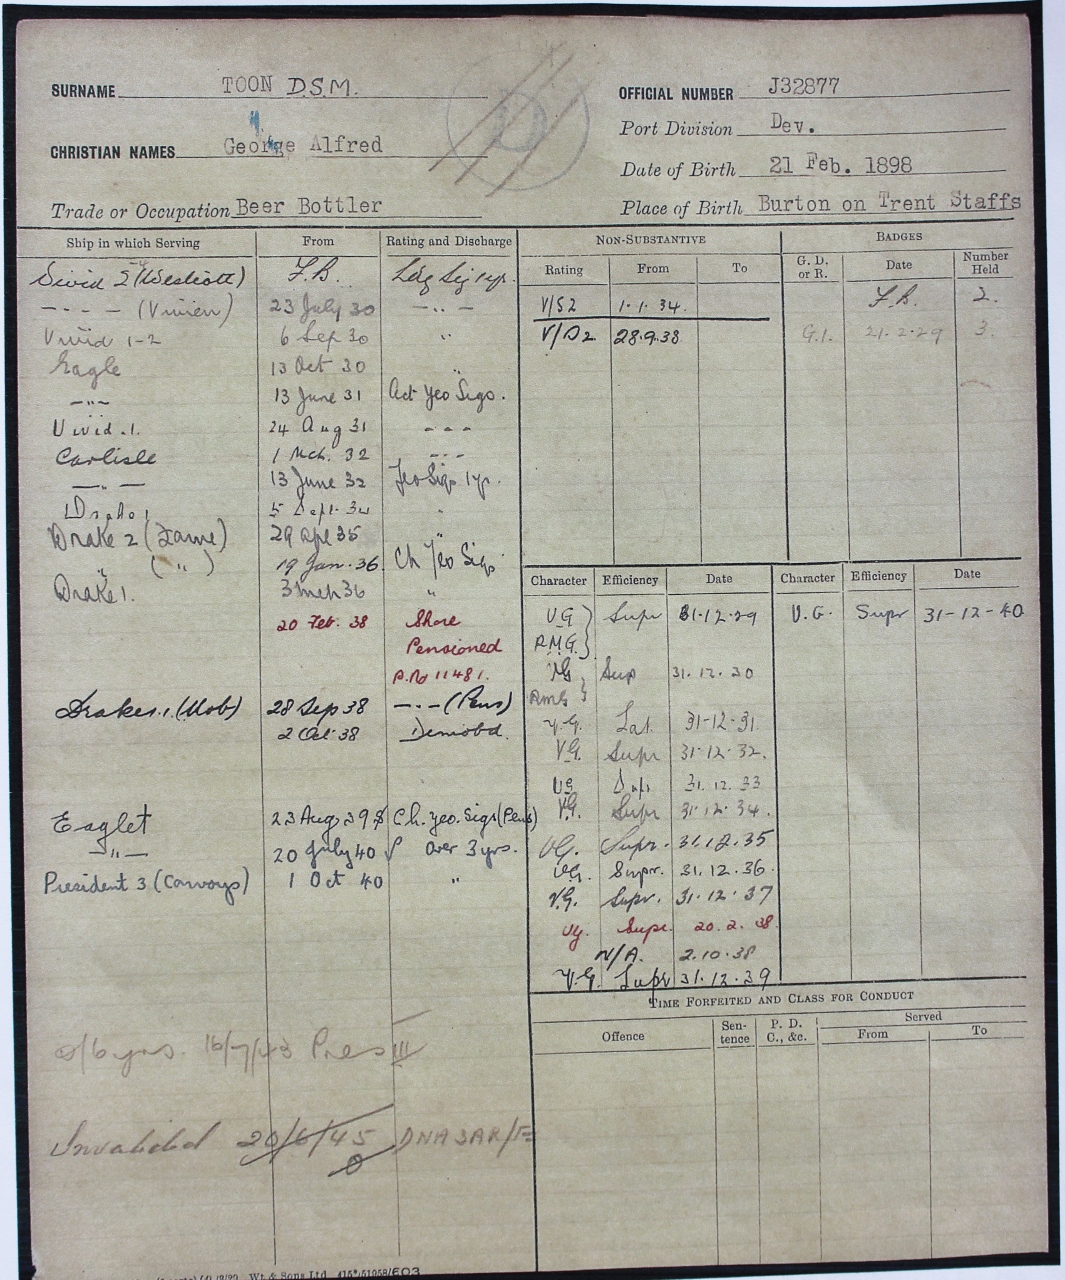 SURNAME TOON D.S.M.
OFFICIAL NUMBER J32877
Port Division Dev.
CHRISTIAN NAMES George Alfred
Date of Birth 21 Feb. 1898
Trade or Occupation Beer Bottler
Place of Birth Burton on Trent Staffs
Ship in which Serving From Rating and Discharge
F.B. Ldg Sig
(Vivien) 23 July 30 - " -
Vivid 1-2 6 Sep 30 "
Eagle 13 Oct 30 "
- " - 13 June 31 Act Yeo Sigs.
Vivid.1. 24 Aug 31 - - -
Carlisle 1 Mch. 32 - - -
- " - 13 June 32 Yeo Sigs
Drake 1 5 Sept. 34 "
Drake 2 (Fame) 29 Apr 35 "
" ( " ) 19 Jan. 36 Ch Yeo Sigs
Drake 1. 3 Mch 36 "
20 Feb. 38 Shore
Pensioned
P. No 11481.
Drake 1. (Mob) 28 Sep 38 - - - (Pens)
2 Oct 38 Demobd.
Eaglet 23 Aug 39 Ch. Yeo. Sigs (Pens)
- " - 20 July 40 Over 3 yrs.
President 3 (Convoys) 1 Oct 40 "
16/7/43 Pres III
Invalided 20/6/45
NON-SUBSTANTIVE
Rating From To
V/S2 1.1.34.
28.9.38
BADGES
G. D. or R. Date Number Held
F.B. 2.
G.1. 21.2.29 3.
Character Efficiency Date Character Efficiency Date
V.G. Supr 31.12.29 V.G. Supr 31-12-40
R.M.G.
V.G. Sup 31.12.30
RMG
V.G. Sat. 31-12-31.
V.G. Supr 31-12-32.
V.G. Supr 31.12.33
V.G. Supr 31.12.34.
V.G. Supr. 31.12.35
V.G. Supr. 31.12.36.
V.G. Supr. 31.12.37
V.G. Supr. 20.2.38
N/A. 2.10.38
V.G. Supr 31.12.39
TIME FORFEITED AND CLASS FOR CONDUCT
Offence Sen-tence P. D. C., &c. Served
From To
Wt. & Sons Ltd.